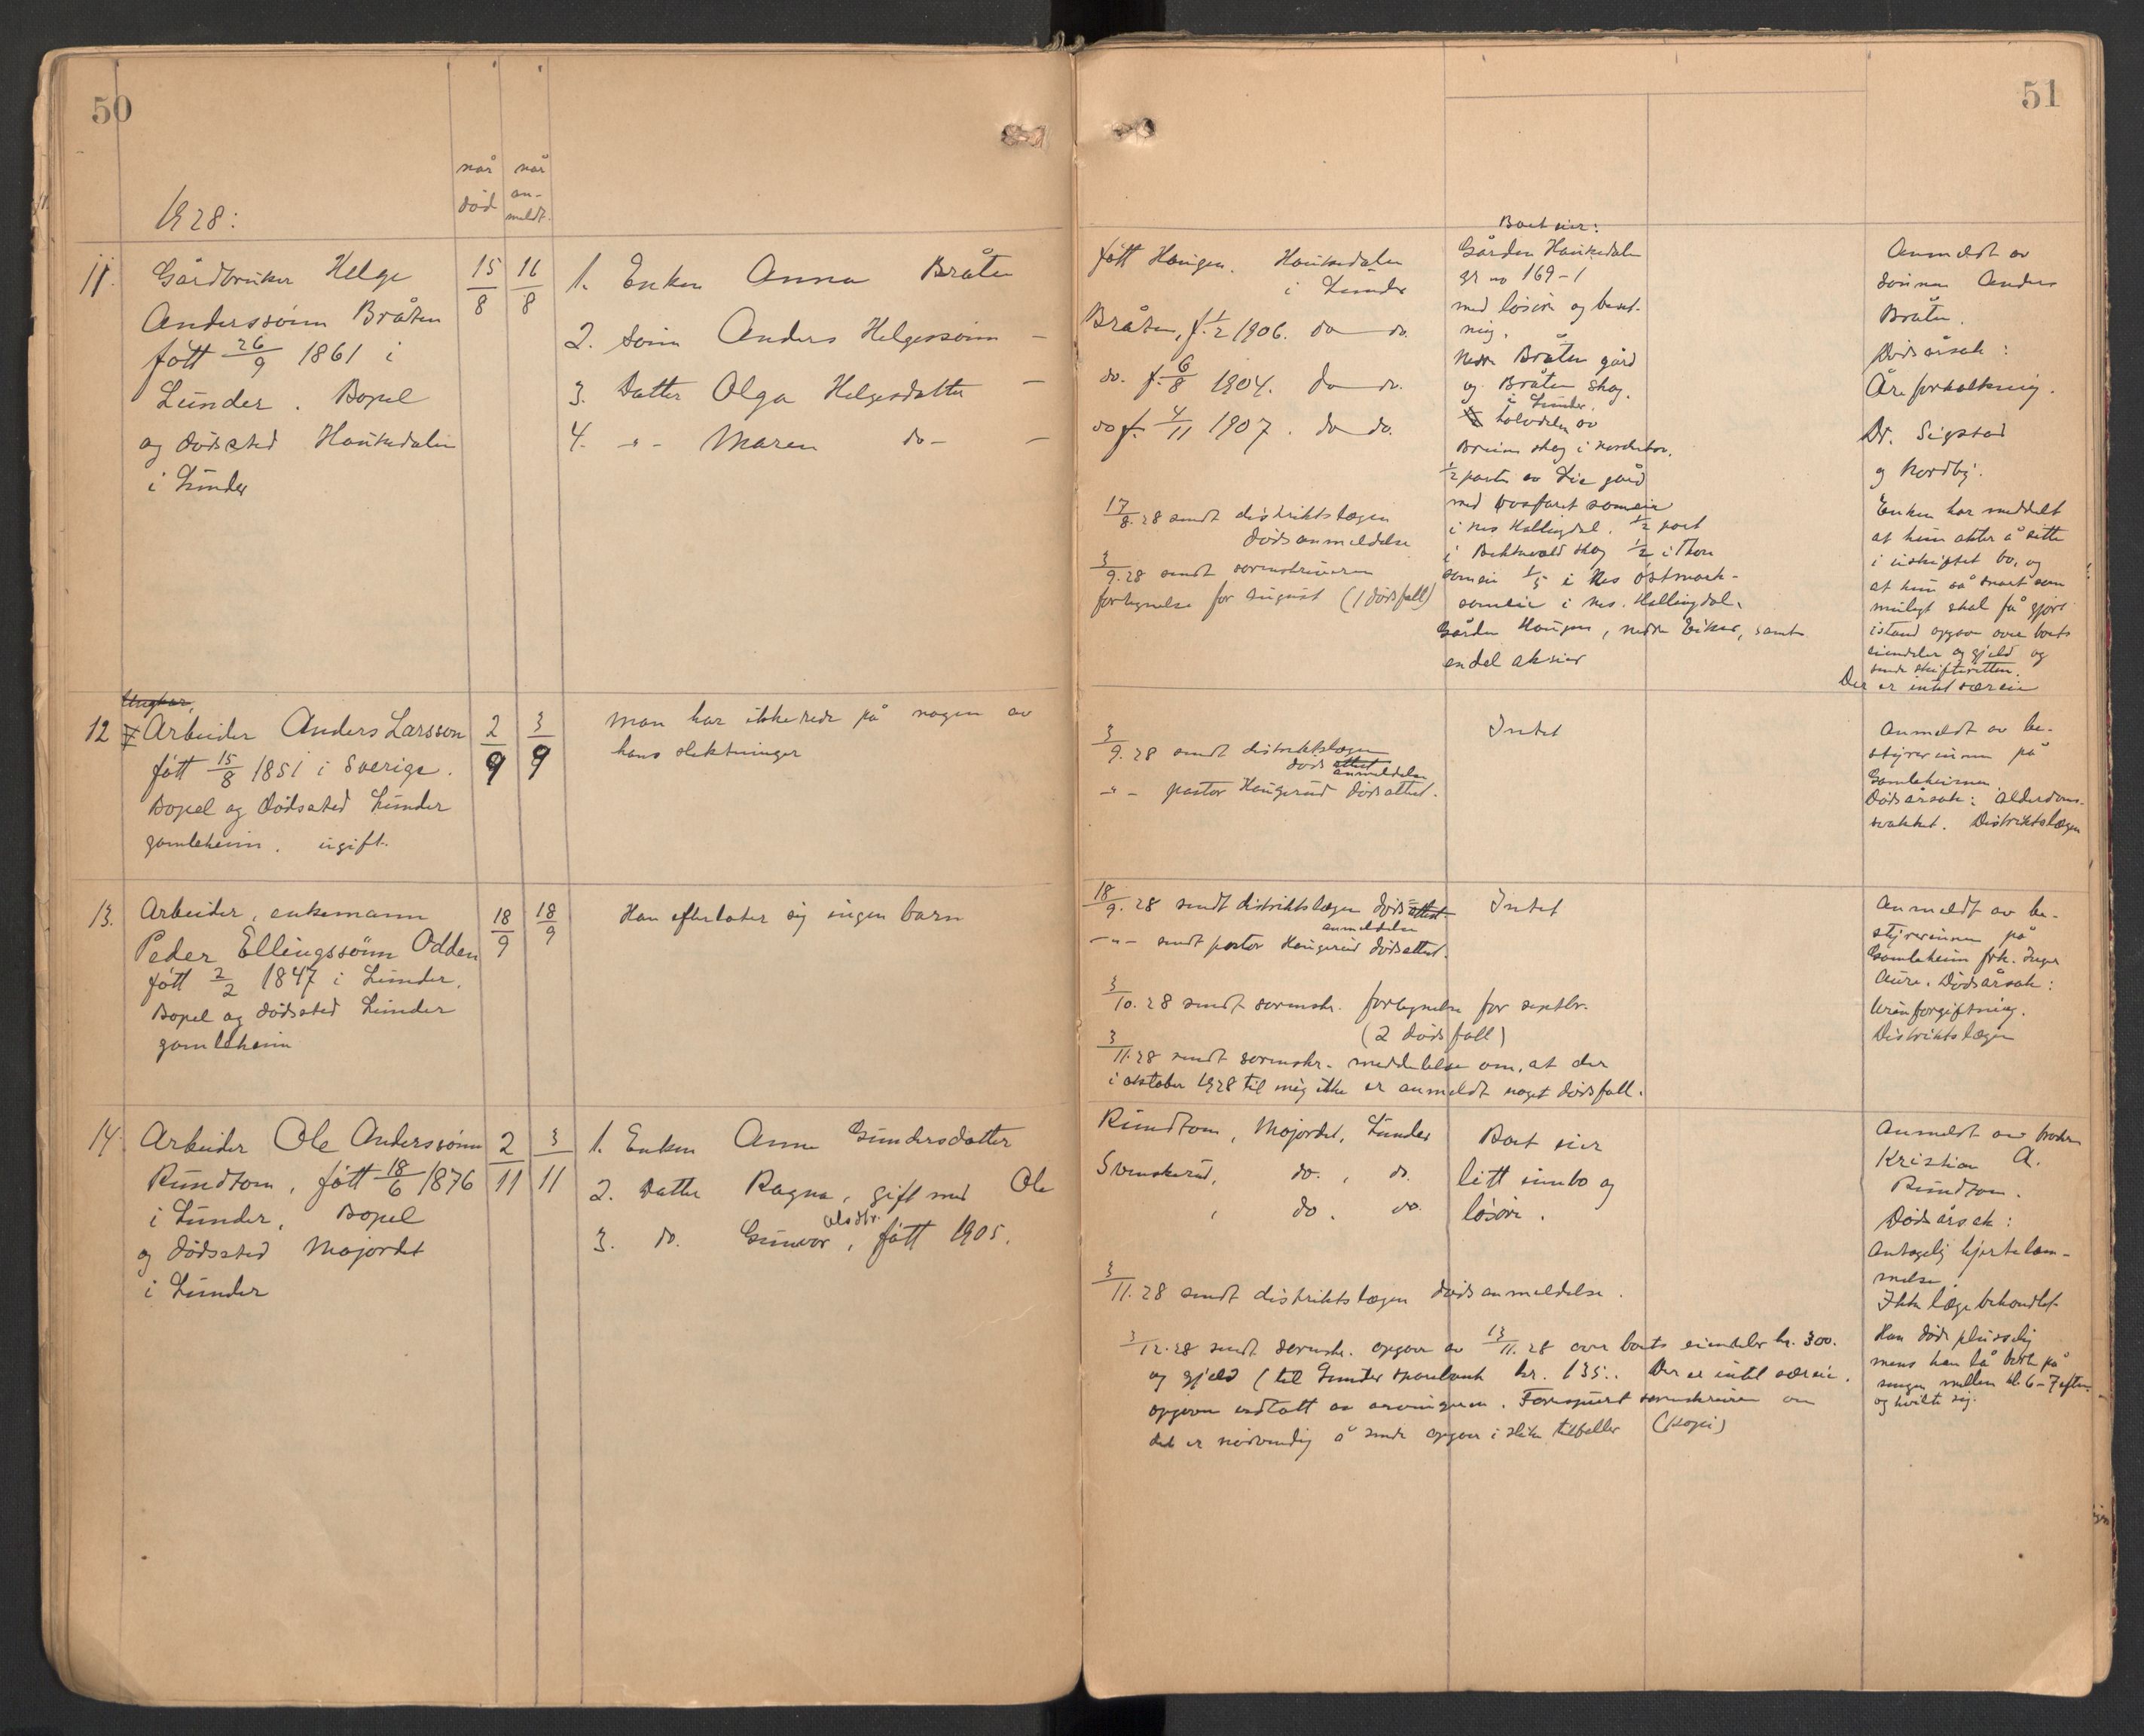 50
når
død
når
an-
meldt.
1928:
11.
Gårdbruker Helge
Anderssønn Bråten
født 26/9 1861 i
Lunder. Bopel
og dødssted Haukedalen
i Lunder
15/8
16/8
1. Enken Anna Bråten
2. Sønn Anders Helgessønn —
3. Datter Olga Helgesdatter —
4. -"- Maren do- —
12
Ungkar,
Arbeider Anders Larsson
født 15/8 1851 i Sverige.
Bopel og dødssted Lunder
gamleheim. ugift.
2/9
3/9
Man har ikke rede på nogen av
hans slektninger
13.
Arbeider, enkemann
Peder Ellingssønn Odden
født 2/2 1847 i Lunder.
Bopel og dødssted Lunder
gamleheim
18/9
18/9
Han efterlater sig ingen barn
14.
Arbeider Ole Anderssønn
Rundtom, født 18/6 1876
i Lunder. Bopel
og dødssted Mojordet
i Lunder
2/11
3/11
1. Enken Anne Gundersdatter
2. Datter Ragna, gift med Ole
3. do. Gunvor Olsdtr., født 1905.
51
født Haugen. Haukedalen
i Lunder
Bråten, f. 1/2 1906. do do.
do. f. 6/8 1904. do do.
do f. 4/11 1907. do do.
17/8.28 sendt distriktslægen
dødsanmeldelse
3/9.28 sendt sorenskriveren
fortegnelse for august (1 dødsfall)
Boet eier:
Gården Haukedalen
gr no 169-1
med løsøre og beset-
ning.
Nedre Bråten gård
og Bråten skog.
i Lunder.
halvdelen av
skog i
1/2 parten av gård
med sameie
i Nes Hallingdal. 1/2 part
i skog 1/2 i
sameie 1/5 i Nes østmark-
sameie i Nes. Hallingdal.
Gården Haugen, nedre Eiker, samt
endel aksier
Anmeldt av
sønnen Anders
Bråten.
Dødsårsak:
Åreforkalkning.
Dr. Sigstad
og Nordby.
Enken har meddelt
at hun akter å sitte
i uskiftet bo, og
at hun så snart som
muligt skal få gjort
istand opgave over boets
eiendeler og gjeld og
sende skifteretten.
Der er intet særeie
3/9.28 sendt distriktslægen
døds attest
anmeldelse
-"- pastor Haugerud dødsattest.
Intet
Anmeldt av be-
styrerinnen på
Gamleheimen.
Dødsårsak: Alderdoms-
svakhet. Distriktslægen
18/9.28 sendt distriktslægen døds attest
anmeldelse
-"- sendt pastor Haugerud dødsattest.
3/10.28 sendt sorenskr. fortegnelse for septbr.
(2 dødsfall)
3/11.28 sendt sorenskr. meddelelse om, at der
i oktober 1928 til mig ikke er anmeldt noget dødsfall.
Intet
Anmeldt av be-
styrerinnen på
Gamleheim frk. Inger
Aure. Dødsårsak:
Urinforgiftning.
Distriktslægen
Rundtom, Mojordet, Lunder
Svenskerud, do., do.
, do. do.
Boet eier
litt innbo og
løsøre.
3/11.28 sendt distriktslægen dødsanmeldelse.
3/12.28 sendt sorenskr. opgave av 13/11.28 over boets eiendeler kr. 300.
og gjeld (til Lunder sparebank kr. 135.. Der er intet særeie.
opgaven vedtatt av arvingene. Forespurt sorenskriveren om
det er nødvendig å sende opgave i slike tilfeller (kopi)
Anmeldt av broren
Kristian A.
Rundtom.
Dødsårsak:
Antagelig hjertelam-
melse.
Ikke lægebehandlet
Han døde plusselig
mens han lå på
sengen mellem kl. 6-7 eftm.
og hvilte sig.